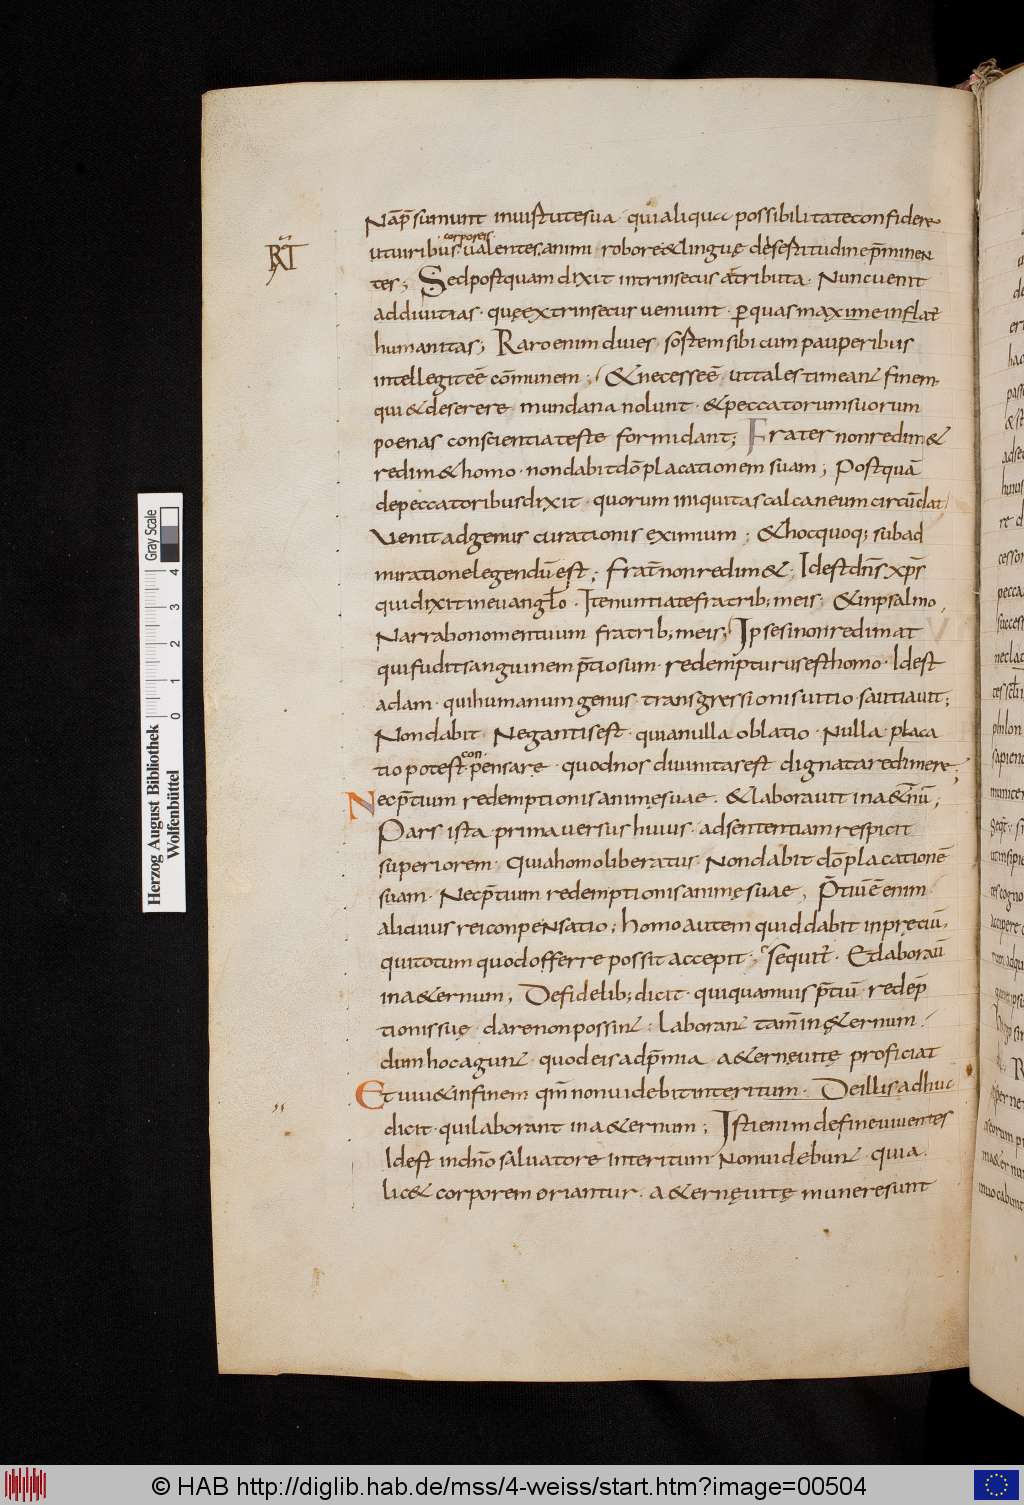 Nāp̄sumunt inuirtutesua · quialiqua possibilitateconfidere
RT
corporeis
utuiribus · ualentes. animi · robore&linguę dèsertitudinep̄minen
tes; Sedpostquamdixit intrinsecus adtributa · Nuncuenit
addiuitias · quęextrinsecus ueniunt · ꝑquasmaximeinflat̄
humanitas; Raroenim diues · sortemsibicumpauperibus
intellegiteē cōmunem; &necesseē uttalestimeant finem ·
qui&deserere mundananolunt · &peccatorumsuorum
poenas conscientiateste formidant; Frater nonredim&
redim&homo · nondabitdō placationem suam; Postquā
depeccatoribusdixit · quorum iniquitascalcaneumcircūdat
Uenitadgenus curationis eximium; &hocquoq; subad
mirationelegendūest; Frat̄nonredim& · Idestdn̄s xp̄s
quidixitineuangƚo · Itenuntiatefratrib; meis; &inpsalmo
Narrabonomentuum fratrib; meis; Ipsesinonredimat
quifuditsanguinem p̄tiosum · redempturusesthomo · Idest
adam · quihumanumgenus · transgressionisuitio sautiauit;
Nondabit · Negantisest · quianulla oblatio · Nulla placa
con
tiopotest · pensare · quodnos diuinitasest dignataredimere;
Necp̄tium redemptionisanimęsuae · &laborauit inaet̄nū;
Pars ista primauersus huius · adsententiamrespicit
superiorem · Quiahomoliberatus · Nondabitdō placationē
suam · Necp̄tium redemptionisanimęsuae; P̄tiūē enim
alicuius reiconpeNsatio; homoautem quiddabit inprętiū ·
quitotumquodofferre possitaccepit; sequit̄ · Etlaboraū
ina&ernum; Defidelib; dicit · quiquamuis p̄tiū · redep̄
tionissuę · darenonpossint · laborant tam̄inę&ernum ·
dumhocagunt · quodeisadp̄mia a&ernęuitę proficiat
Etuiu&infinem qm̄nonuidebitinteritum · Deillisadhuc
dicit · quilaborant ina&ernum; Istienimdefineuiuentes
Idest indn̄osaluatore interitum Nonuidebunt · quia ·
lic& corporemoriantur · a&ernęuitę muneresunt
Herzog August Bibliothek
Wolfenbüttel
0 1 2 3 4
Gray Scale
© HAB http://diglib.hab.de/mss/4-weiss/start.htm?image=00504